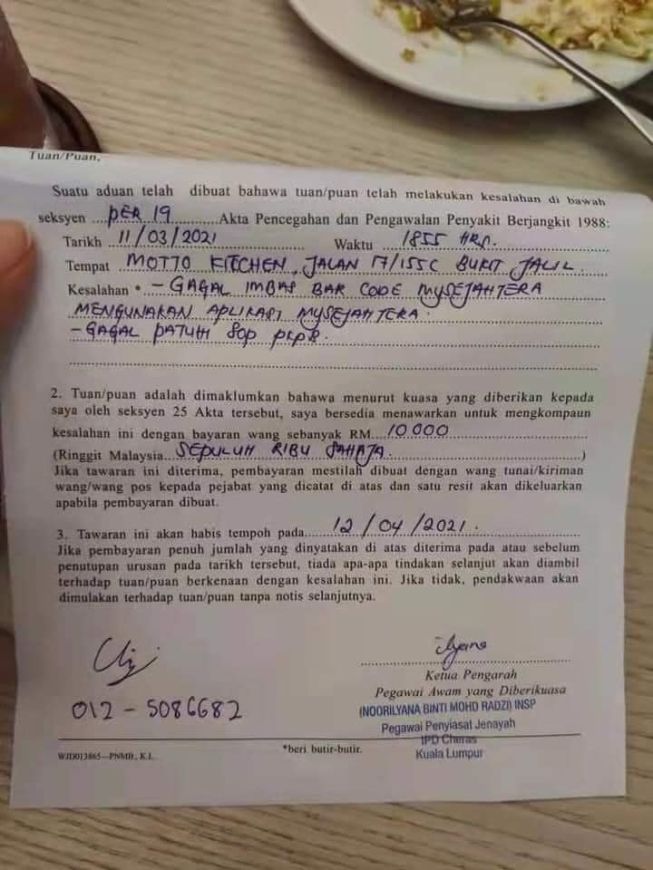 Tuan/Puan,
Suatu aduan telah dibuat bahawa tuan/puan telah melakukan kesalahan di bawah
seksyen PER 19 Akta Pencegahan dan Pengawalan Penyakit Berjangkit 1988:
Tarikh 11/03/2021 Waktu 1855 HRS.
Tempat MOTTO KITCHEN, JALAN 17/155C BUKIT JALIL
Kesalahan * - GAGAL IMBAS BAR CODE MYSEJAHTERA
MENGUNAKAN APLIKASI MYSEJAHTERA.
- GAGAL PATUH SOP PKPB.
2. Tuan/puan adalah dimaklumkan bahawa menurut kuasa yang diberikan kepada
saya oleh seksyen 25 Akta tersebut, saya bersedia menawarkan untuk mengkompaun
kesalahan ini dengan bayaran wang sebanyak RM 10 000
(Ringgit Malaysia SEPULUH RIBU SAHAJA. )
Jika tawaran ini diterima, pembayaran mestilah dibuat dengan wang tunai/kiriman
wang/wang pos kepada pejabat yang dicatat di atas dan satu resit akan dikeluarkan
apabila pembayaran dibuat.
3. Tawaran ini akan habis tempoh pada 12/04/2021.
Jika pembayaran penuh jumlah yang dinyatakan di atas diterima pada atau sebelum
penutupan urusan pada tarikh tersebut, tiada apa-apa tindakan selanjut akan diambil
terhadap tuan/puan berkenaan dengan kesalahan ini. Jika tidak, pendakwaan akan
dimulakan terhadap tuan/puan tanpa notis selanjutnya.
Ketua Pengarah
Pegawai Awam yang Diberikuasa
012 - 5086682
(NOORILYANA BINTI MOHD RADZI) INSP
Pegawai Penyiasat Jenayah
IPD Cheras
Kuala Lumpur
*beri butir-butir.
WJD013865—PNMB., K.L.